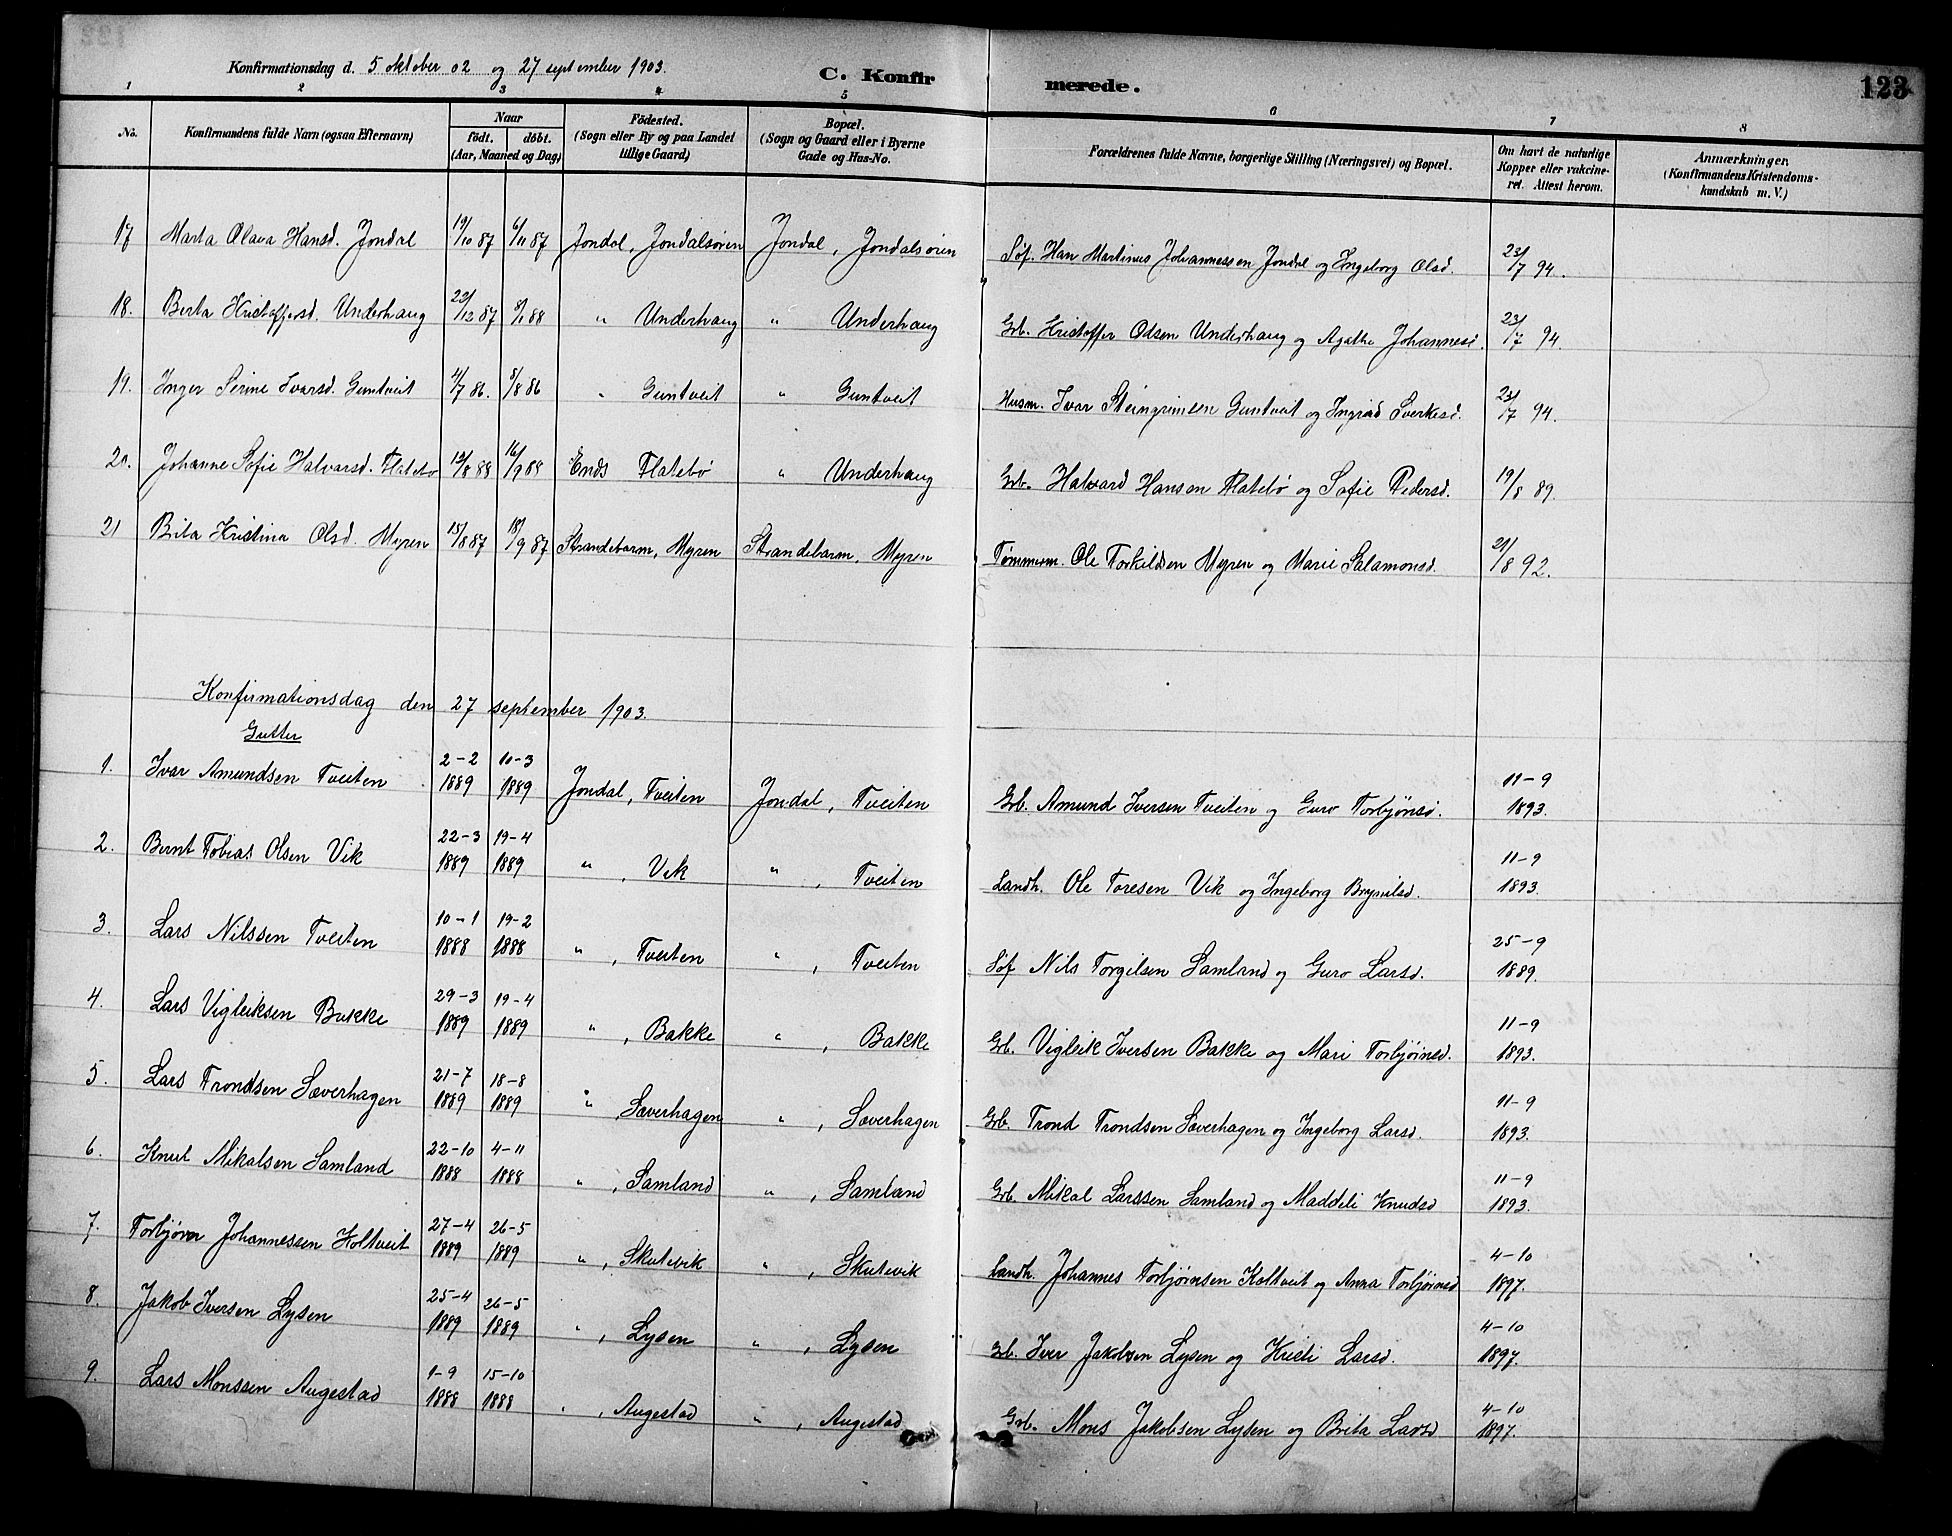 Konfirmationsdag d. 5 oktober 02 og 27 september 1903.
C. Konfirmerede.
123
1 2 3 4 5 6 7 8
No.
Konfirmandens fulde Navn (ogsaa Efternavn)
Naar
födt. döbt.
(Aar, Maaned og Dag)
Födested.
(Sogn eller By og paa Landet
tillige Gaard)
Bopæl.
(Sogn og Gaard eller i Byerne
Gade og Hus-No.
Forældrenes fulde Navne, borgerlige Stilling (Næringsvei) og Bopæl.
Om havt de naturlige
Kopper eller vakcine-
ret. Attest herom.
Anmærkninger.
(Konfirmandens Kristendoms-
kundskab m. V.)
17 Marta Olava Hansd. Jondal 19/10 87 6/11 87 Jondal, Jondalsøren Jondal, Jondalsøren Søf. Han Martinus Johannessen Jondal og Ingeborg Olsd. 23/7 94.
18. Berta Kristoffersd. Underhaug 22/12 87 8/1 88 " Underhaug " Underhaug Grb. Kristoffer Odsen Underhaug og Agathe Johannesd. 23/7 94.
19. Inger Serine Ivarsd. Guntveit 4/7 86. 8/8 86 " Guntveit " Guntveit Husm. Ivar Steingrimsen Guntveit og Ingrid Sverkesd. 23/7 94.
20. Johanne Sofie Halvarsd. Flatebø 12/8 88 16/9 88 Ends Flatebø " Underhaug Grb. Halvard Hanson Flatebø og Sofie Pedersd. 19/8 89.
21 Brita Kristina Olsd. Myren 15/8 87 18/9 87 Strandebarm, Myren Strandebarm, Myren Tømmerm. Ole Torkildsen Myren og Marie Salamonsd. 21/8 92.
Konfirmationsdag den 27 september 1903.
Gutter
1. Ivar Amundsen Tveiten 2-2 1889 10-3 1889 Jondal, Tveiten Jondal, Tveiten Grb. Amund Iversen Tveiten og Guro Torbjönsd. 11-9 1893.
2. Bernt Tobias Olsen Vik 22-3 1889 19-4 1889 " , Vik " , Tveiten Landh. Ole Toresen Vik og Ingeborg Brynilsd. 11-9 1893.
3. Lars Nilssen Tveiten 10-1 1888 19-2 1888 " , Tveiten " , Tveiten Søf Nils Torgilsen Samland og Guro Larsd. 25-9 1889.
4. Lars Vigleiksen Bakke 29-3 1889 19-4 1889 " , Bakke " , Bakke Grb. Vigleik Iversen Bakke og Mari Torbjørnsd. 11-9 1893.
5. Lars Trondsen Sæverhagen 21-7 1889 18-8 1889 " , Sæverhagen " , Sæverhagen Grb. Trond Trondsen Sæverhagen og Ingeborg Larsd. 11-9 1893.
6. Knut Mikalsen Samland 22-10 1888 4-11 1888 " , Samland " , Samland Grb. Mikal Larssen Samland og Maddeli Knudsd 11-9 1893.
7. Torbjørn Johannessen Koltveit 27-4 1889 26-5 1889 " , Skutevik " , Skutevik Landh. Johannes Torbjørnsen Koltveit og Anna Torbjørnsd 4-10 1897.
8. Jakob Iversen Lysen 25-4 1889 26-5 1889 " , Lysen " , Lysen Grb. Iver Jakobsen Lysen og Kristi Larsd. 4-10 1897.
9. Lars Monssen Augestad 9-9 1888 15-10 1888 " , Augestad " , Augestad Grb. Mons Jakobsen Lysen og Brita Larsd 4-10 1897.